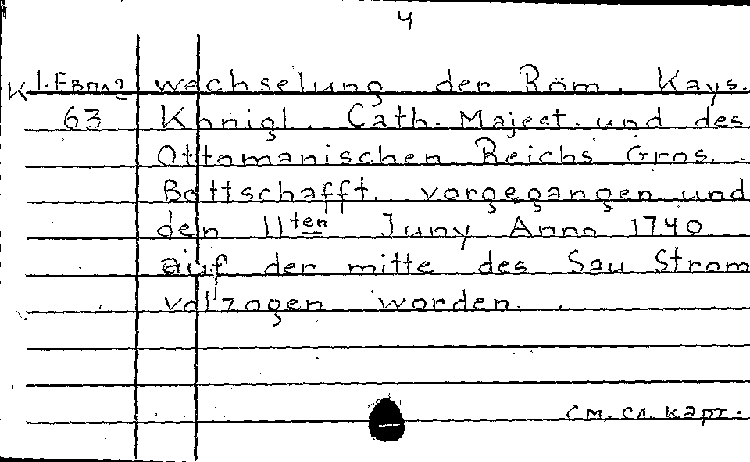 4
К 1.Евпл2 wechselung der Röm. Kays.
63 Königl. Cath. Majest. und des
Ottomanischen Reichs Gros.
Bottschafft. vorgegangen und
den 11ten Juny Anno 1740
auf der mitte des Sau Strom
volzogen worden. .
см. сл. карт.